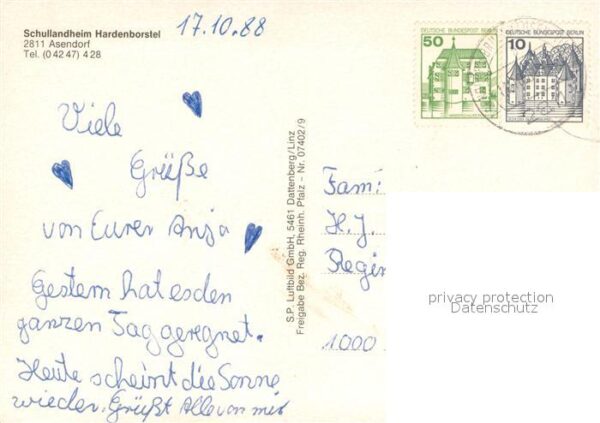 Schullandheim Hardenborstel
2811 Asendorf
Tel. (0 42 47) 4 28
17.10.88
Viele
Grüße
von Eurer Anja
Gestern hat es den
ganzen Tag geregnet.
Heute scheint die Sonne
wieder. Grüßt Alle von mir
S.P. Luftbild GmbH, 5461 Dattenberg/Linz
Freigabe Bez. Reg. Rheinh. Pfalz - Nr. 07402/9
50
DEUTSCHE BUNDESPOST BERLIN
10
DEUTSCHE BUNDESPOST BERLIN
Fam:
H.J.
Regin
1000
privacy protection
Datenschutz